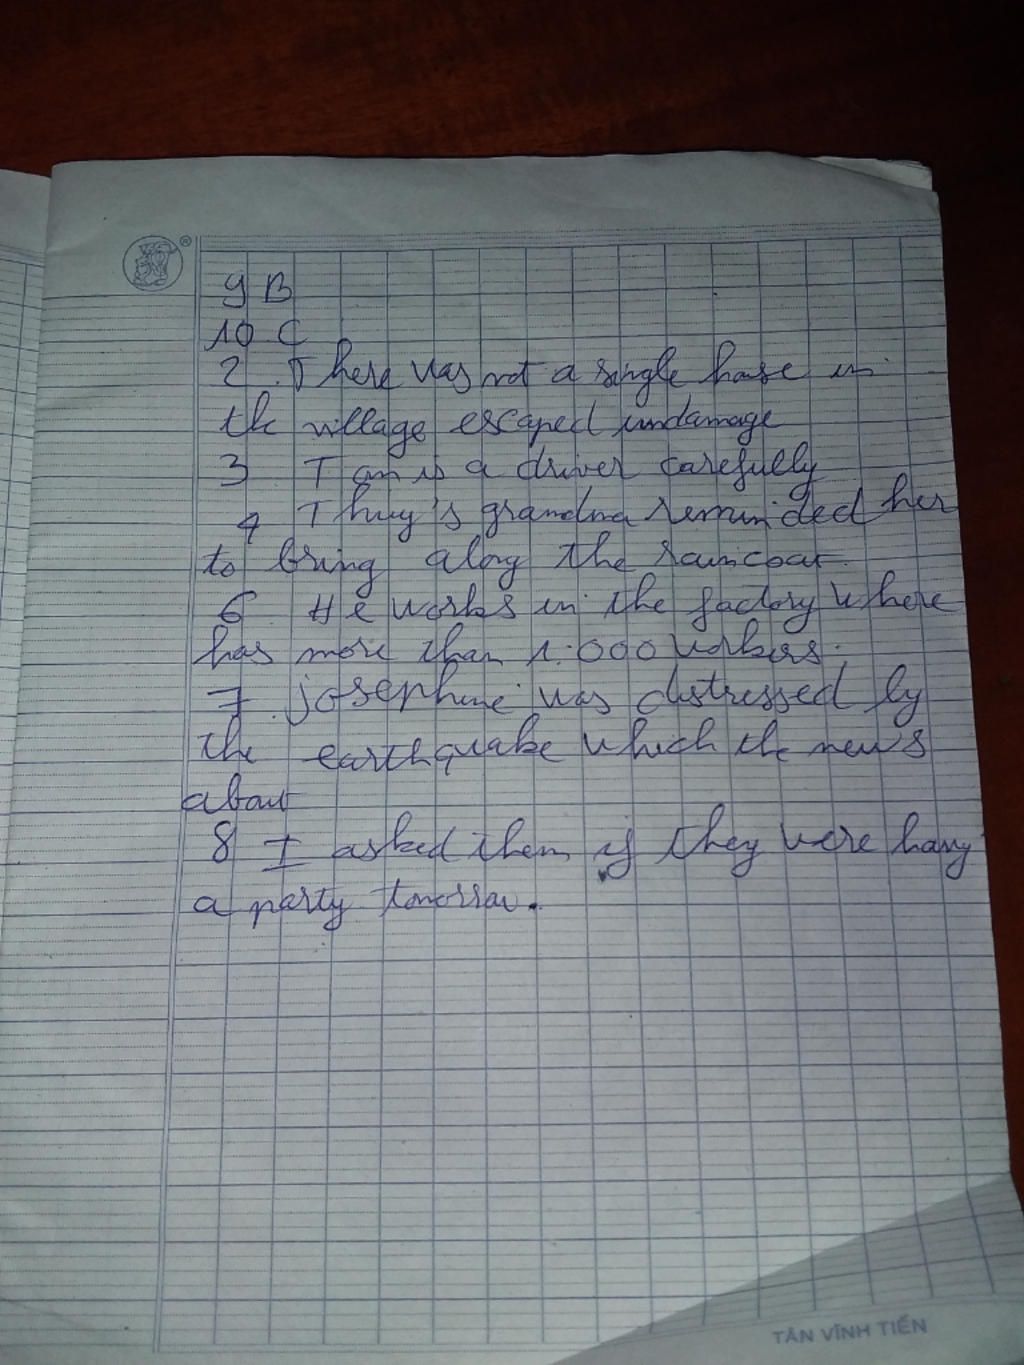 ®
9 B
10 C
2. There was not a single house in
the village escaped undamage
3 Tom is a driver carefully
4 Thuy's grandma reminded her
to bring along the raincoat.
6. He works in the factory where
has more than 1.000 workers.
7. josephine was distressed by
the earthquake which the news
about
8 I asked them if they were having
a party tomorrow.
TÂN VĨNH TIẾN